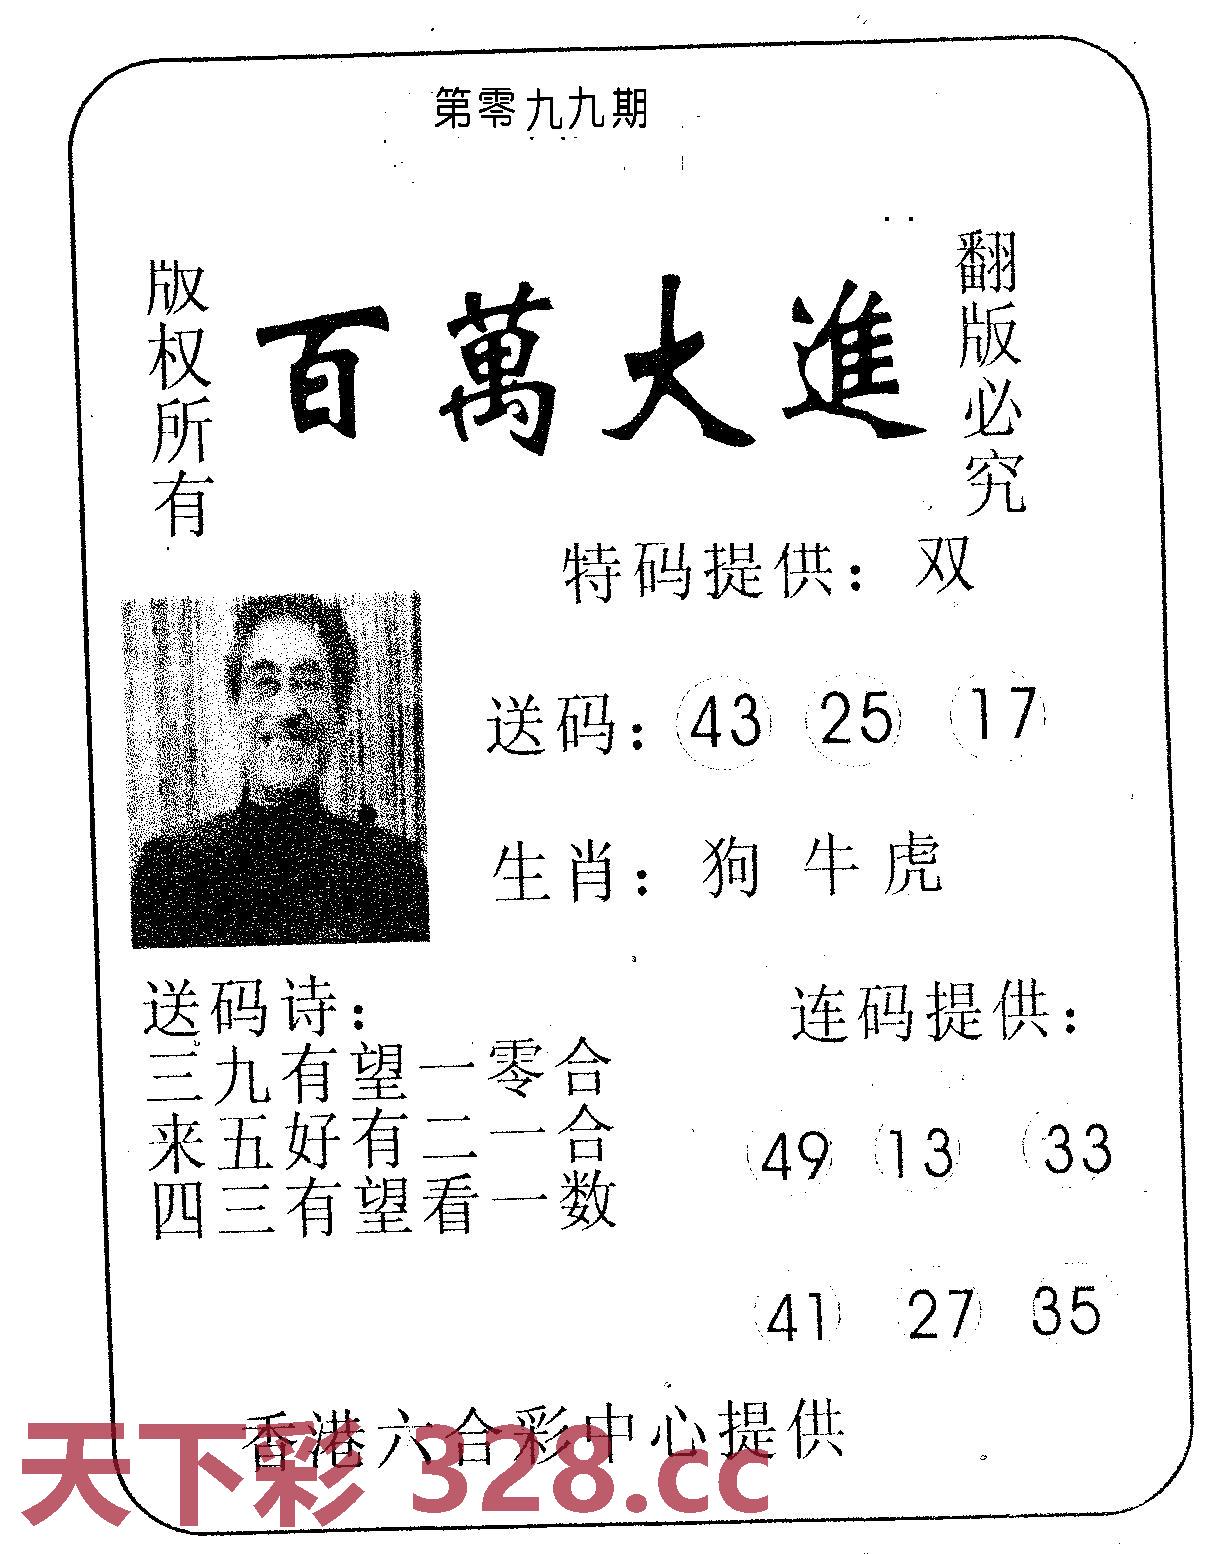 第零九九期
版权所有
百萬大進
翻版必究
特码提供：双
送码：43 25 17
生肖：狗 牛 虎
送码诗：
三九有望一零合
来五好有二一合
四三有望看一数
连码提供：
49 13 33
41 27 35
香港六合彩中心提供
天下彩 328.cc